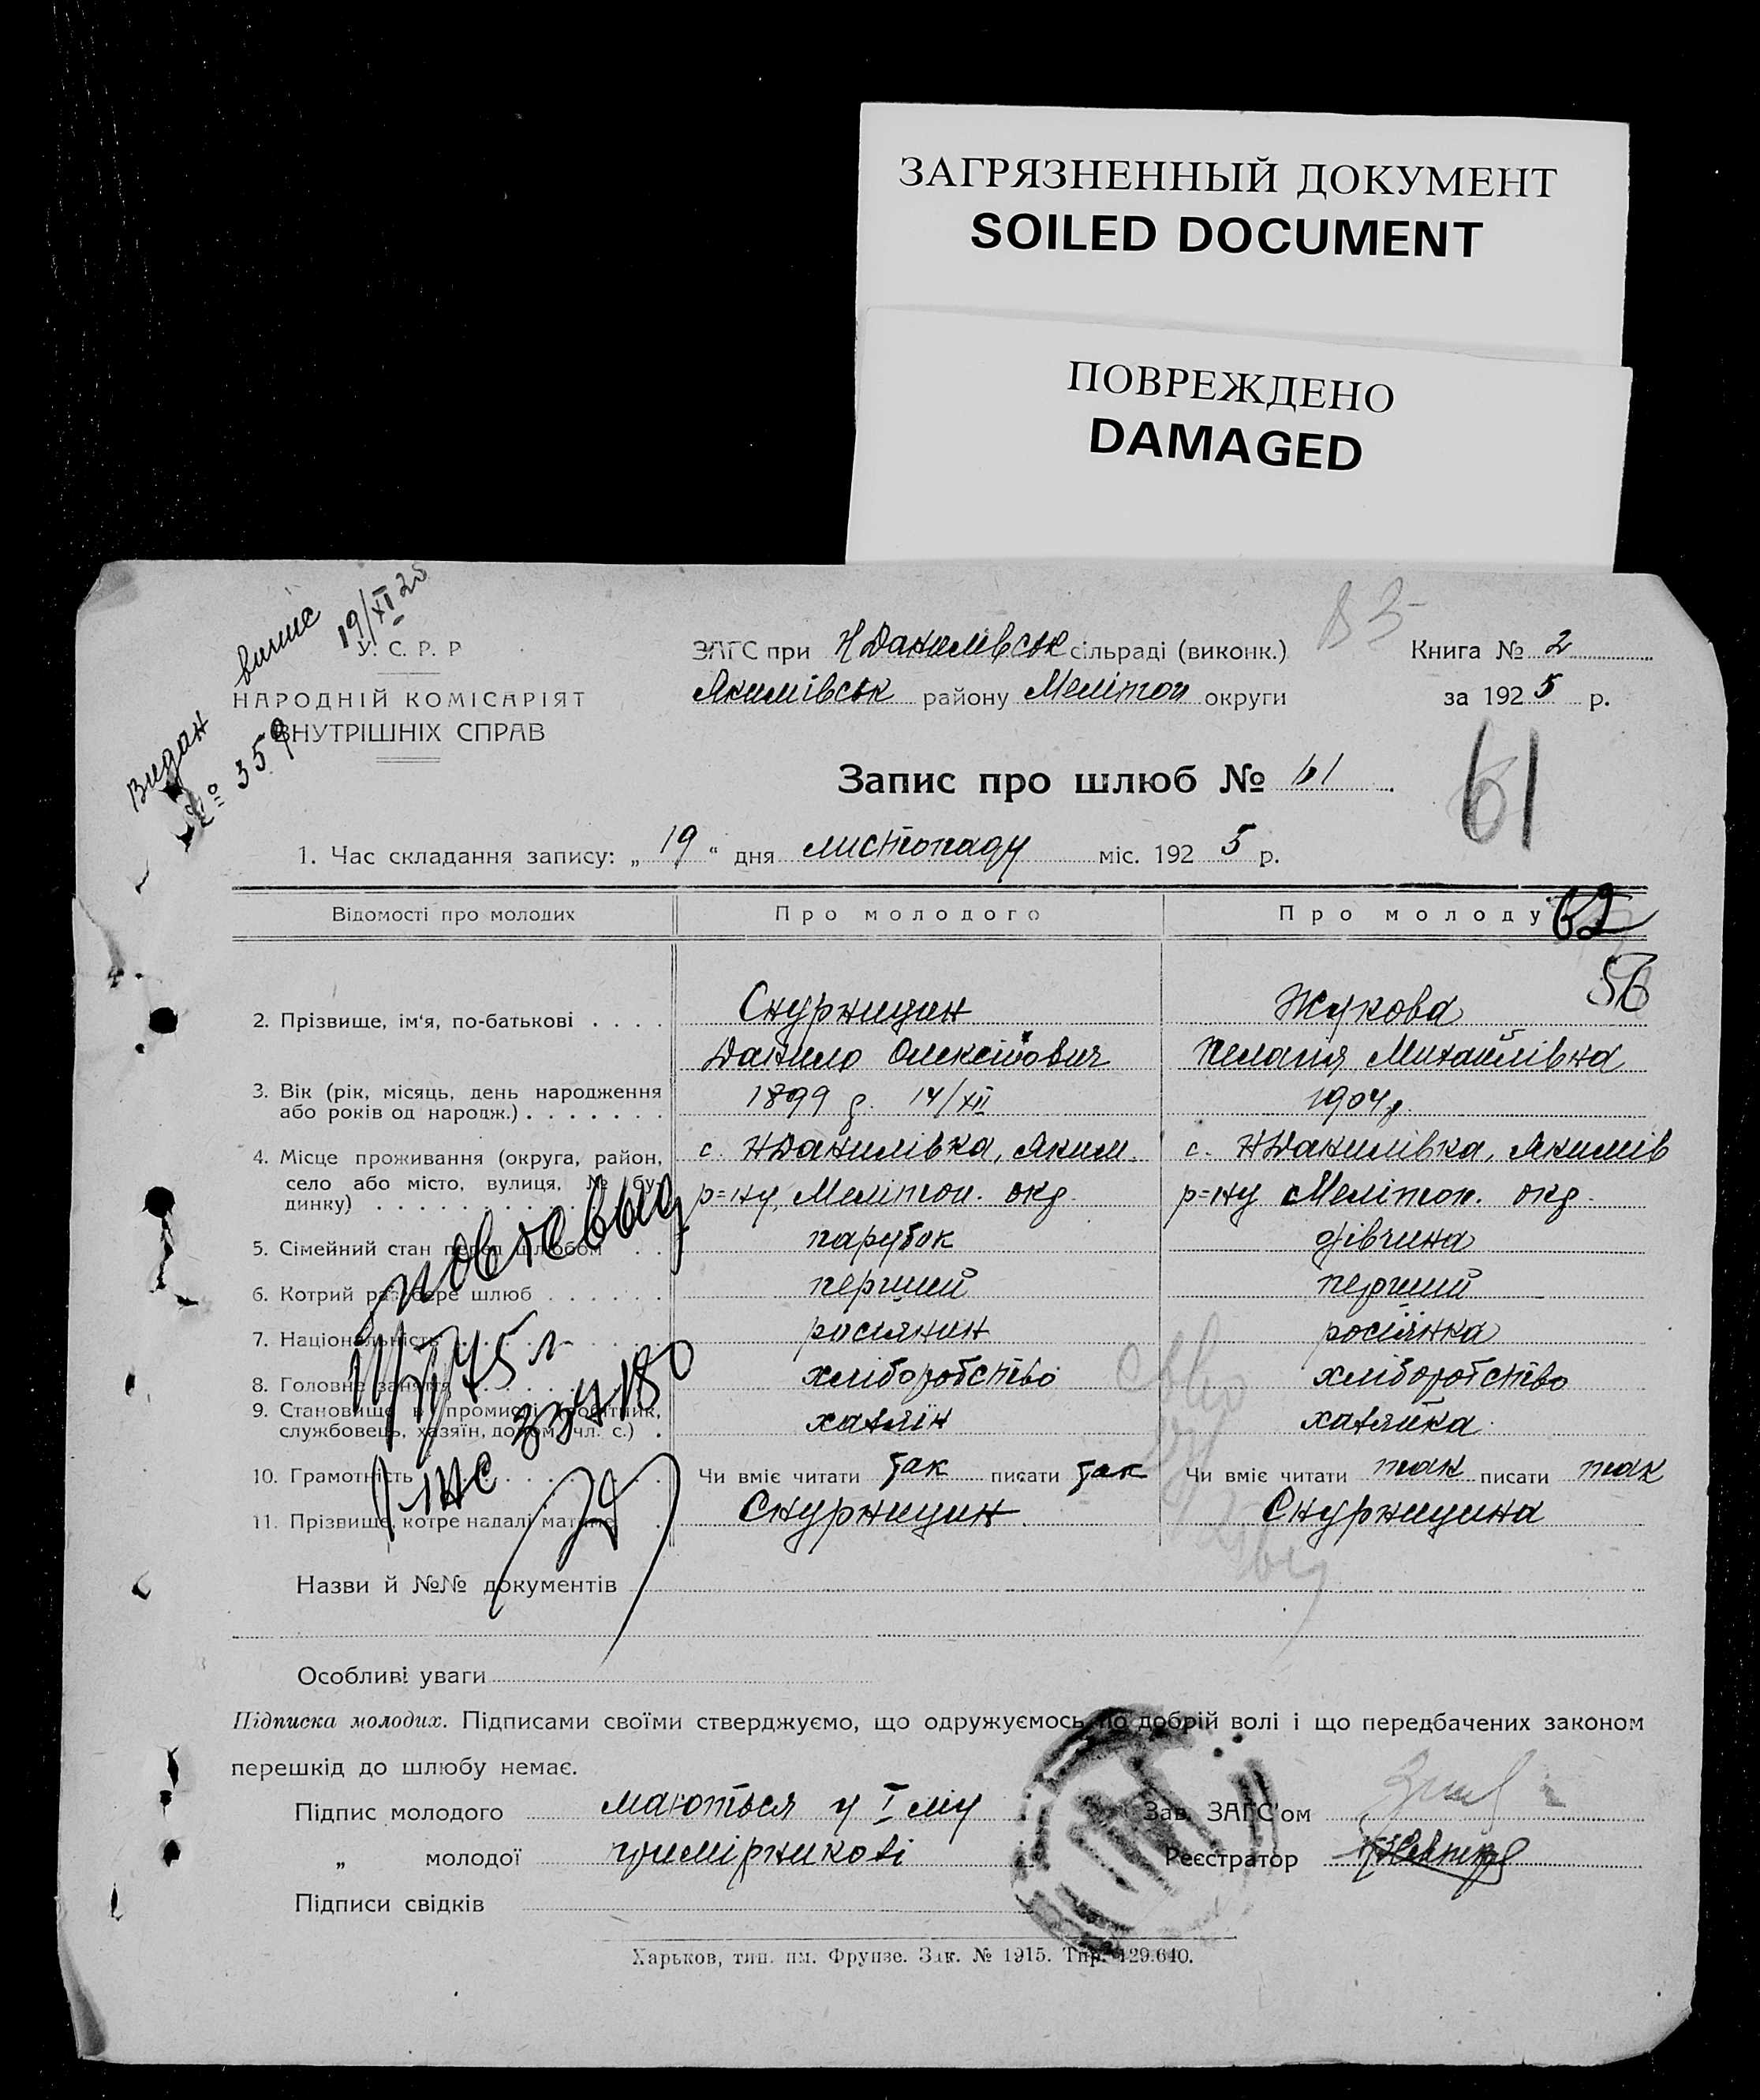 ЗАГРЯЗНЕННЫЙ ДОКУМЕНТ
SOILED DOCUMENT
ПОВРЕЖДЕНО
DAMAGED
випис 19/XI 25
Видан
№ 359
У. С. Р. Р
НАРОДНІЙ КОМІСАРІЯТ
ВНУТРІШНІХ СПРАВ
ЗАГС при НДанилівськ сільраді (виконк.)
Якимівськ району Мелітоп округи
Книга № 2
за 1925 р.
Запис про шлюб № 61
61
1. Час складання запису: „ 19 “ дня листопаду міс. 1925 р.
Відомості про молодих Про молодого Про молоду 62
56
2. Прізвище, ім‘я, по-батькові . . . . Снурницин Жукова
Данило Олексійович Пелагія Михайлівна
3. Вік (рік, місяць, день народження або років од народж.) . . . . . . . 1899 р. 14/XII 1904 р.
4. Місце проживання (округа, район, село або місто, вулиця, № будинку) с. НДанилівка, Яким. с. НДанилівка, Якимів
р=ну, Мелітоп. окр. р=ну Мелітоп. окр.
5. Сімейний стан перед шлюбом . . парубок дівчина
6. Котрий раз бере шлюб . . . . . . перший перший
7. Національність росіянин росіянка
8. Головне заняття хліборобство хліборобство
9. Становище в промислі робітник, службовець, хазяїн, допом. чл. с.) . хазяїн хазяйка
10. Грамотність Чи вміє читати так писати так Чи вміє читати так писати так
11. Прізвище, котре надалі матиме Снурницин Снурницина
повтовыд
Назви й №№ документів
Особливі уваги
Підписка молодих. Підписами своїми стверджуємо, що одружуємось по добрій волі і що передбачених законом
перешкід до шлюбу немає.
Підпис молодого маються у І му Зав. ЗАГС'ом
„ молодої примірникові Реєстратор
Підписи свідків
Харьков, тип. им. Фрунзе. Зак. № 1915. Тир. 129.640.